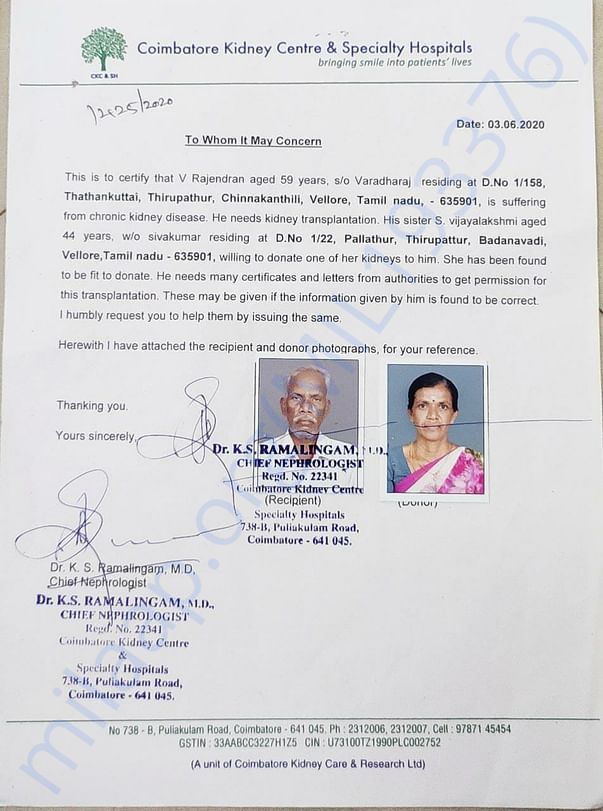 Coimbatore Kidney Centre & Specialty Hospitals
bringing smile into patients' lives
CKC & SH
12425/2020
Date: 03.06.2020
To Whom It May Concern
This is to certify that V Rajendran aged 59 years, s/o Varadharaj residing at D.No 1/158,
Thathankuttai, Thirupathur, Chinnakanthili, Vellore, Tamil nadu, - 635901, is suffering
from chronic kidney disease. He needs kidney transplantation. His sister S. vijayalakshmi aged
44 years, w/o sivakumar residing at D.No 1/22, Pallathur, Thirupattur, Badanavadi,
Vellore,Tamil nadu - 635901, willing to donate one of her kidneys to him. She has been found
to be fit to donate. He needs many certificates and letters from authorities to get permission for
this transplantation. These may be given if the information given by him is found to be correct.
I humbly request you to help them by issuing the same.
Herewith I have attached the recipient and donor photographs, for your reference.
Thanking you.
Yours sincerely,
Dr. K.S. RAMALINGAM, M.D.,
CHIEF NEPHROLOGIST
Regd. No. 22341
Coimbatore Kidney Centre
(Recipient)
(Donor)
Specialty Hospitals
738-B, Puliakulam Road,
Coimbatore - 641 045.
Dr. K. S. Ramalingam, M.D,
Chief Nephrologist
Dr. K.S. RAMALINGAM, M.D.,
CHIEF NEPHROLOGIST
Regd. No. 22341
Coimbatore Kidney Centre
&
Specialty Hospitals
738-B, Puliakulam Road,
Coimbatore - 641 045.
No 738 - B, Puliakulam Road, Coimbatore - 641 045. Ph : 2312006, 2312007, Cell : 97871 45454
GSTIN : 33AABCC3227H1Z5 CIN : U73100TZ1990PLC002752
(A unit of Coimbatore Kidney Care & Research Ltd)